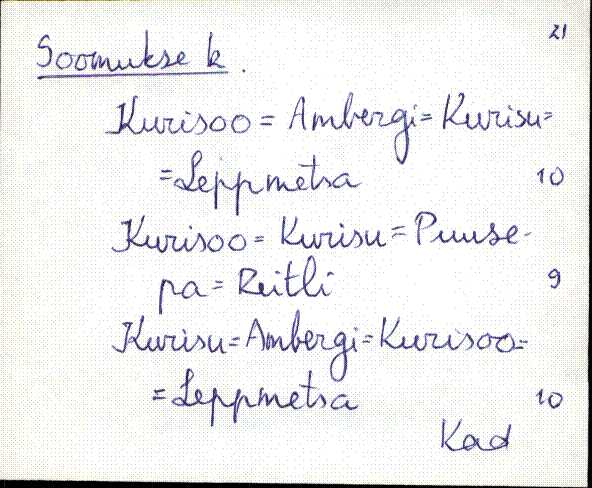 21
Soomukse k.
Kurisoo = Ambergi = Kurisu =
= Leppmetsa 10
Kurisoo = Kurisu = Puuse-
pa = Reitli 9
Kurisu = Ambergi = Kurisoo =
= Leppmetsa 10
Kad